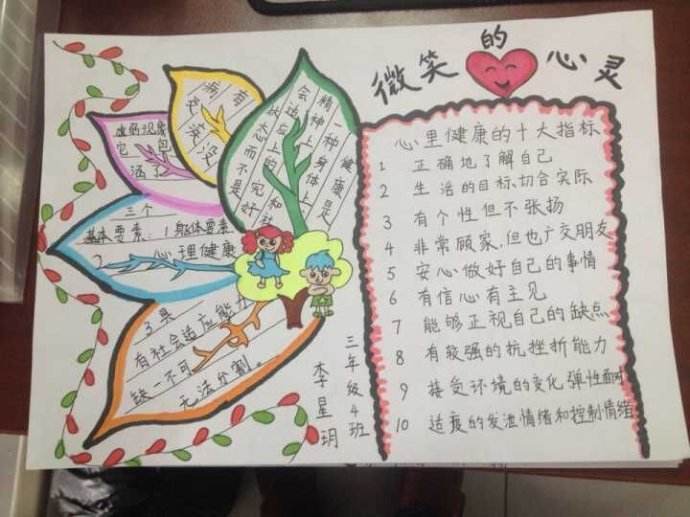 微笑的心灵
心里健康的十大指标
1 正确地了解自己
2 生活的目标切合实际
3 有个性但不张扬
4 非常顾家,但也广交朋友
5 安心做好自己的事情
6 有信心有主见
7 能够正视自己的缺点
8 有较强的抗挫折能力
9 接受环境的变化弹性
10 适度的发泄情绪和控制情绪
健康是
一种身体上
精神上
会适应上的完和社
状态而不是好
有
病
没
它包
涵了
三个
基本要素:1身体要素
2 心理健康
3具
有社会适应能力
缺一不可
无法分割。
三年级4班
李星玥